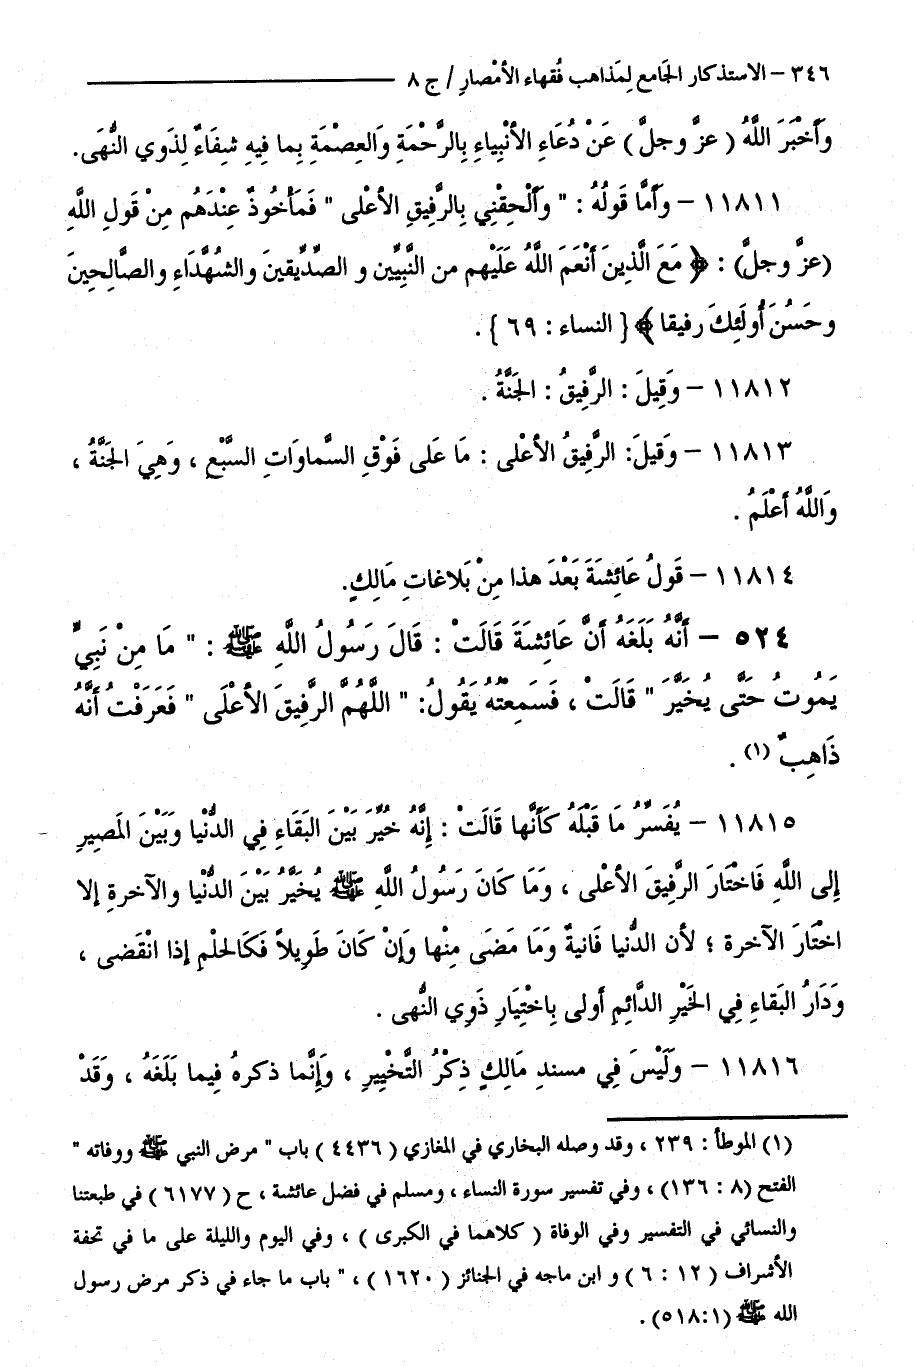 ٣٤٦ – الاستذكار الجَامع لِمَذاهب فُقهاء الأمْصارِ / ج ٨
وَأَخْبَرَ اللَّهُ ( عزَّ وجلَّ ) عَنْ دُعَاءِ الأَنْبِياءِ بِالرَّحْمَةِ وَالعِصْمَةِ بِما فِيهِ شِفَاءٌ لِذَوي النُّهَى.
١١٨١١ – وَأَمَّا قَولُهُ : " وأَلْحِقْنِي بِالرَّفِيقِ الأعْلى " فَمَأْخُوذٌ عِنْدَهُم مِنْ قَولِ اللَّهِ
(عزَّ وجلَّ) : ﴿ مَعَ الَّذِينَ أَنْعَمَ اللَّهُ عَلَيْهِم من النَّبِيِّين و الصِّدِّيقينَ والشُهَّدَاءِ والصَّالِحِينَ
وحَسُنَ أُولَئِكَ رفيقا ﴾ { النساء : ٦٩ } .
١١٨١٢ – وَقِيلَ : الرَّفِيقُ : الجَنَّةُ .
١١٨١٣ – وَقيلَ: الرَّفِيقُ الأعْلى : مَا عَلى فَوْقِ السَّماوَاتِ السَّبْعِ ، وَهِيَ الجَنَّةُ ،
وَاللَّهُ أَعْلَمُ .
١١٨١٤ – قَولُ عَائِشَةَ بَعْدَ هذا مِنْ بَلاغاتِ مَالِكٍ.
٥٢٤ – أَنَّهُ بَلَغَهُ أَنَّ عَائِشَةَ قَالَتْ : قَالَ رَسُولُ اللَّهِ ﷺ : " مَا مِنْ نَبِيٍّ
يَمُوتُ حَتَّى يُخَيَّرَ " قَالَتْ ، فَسَمِعْتُهُ يَقُولُ: " اللَّهُمَّ الرَّفِيقَ الأَعْلَى " فَعَرَفْتُ أَنَّهُ
ذَاهِبٌ (١) .
١١٨١٥ – يُفَسِّرُ مَا قَبْلَهُ كَأَنَّها قَالَتْ : إِنَّهُ خُيِّرَ بَيْنَ البَقَاءِ فِي الدُّنْيا وَبَيْنَ المَصِيرِ
إِلى اللَّهِ فَاخْتَارَ الرَّفِيقَ الأعْلى ، وَمَا كَانَ رَسُولُ اللَّهِ ﷺ يُخَيَّرُ بَيْنَ الدُّنْيا والآخرةِ إلا
اخْتَارَ الآخرة ؛ لأن الدُّنيا فَانيةٌ وَمَا مَضَى مِنْها وَإِنْ كَانَ طَوِيلاً فَكَالحلْمِ إذا انْقَضى ،
وَدَارُ البَقاءِ فِي الخَيْرِ الدَّائِمِ أولى بِاخْتِيَارِ ذَوِي النُّهى .
١١٨١٦ – وَلَيْسَ فِي مسندِ مَالِكٍ ذِكْرُ التَّخْيِيرِ ، وَإِنَّما ذكرهُ فِيما بَلَغَهُ ، وَقَدْ
(١) الموطأ : ٢٣٩ ، وقد وصله البخاري في المغازي ( ٤٤٣٦ ) باب " مرض النبي ﷺ ووفاته "
الفتح (٨ : ١٣٦)، وفي تفسير سورة النساء ، ومسلم في فضل عائشة ، ح ( ٦١٧٧ ) في طبعتنا
والنسائي في التفسير وفي الوفاة ( كلاهما في الكبرى ) ، وفي اليوم والليلة على ما في تحفة
الأشراف ( ١٢ : ٦ ) و ابن ماجه في الجنائز ( ١٦٢٠ ) ، " باب ما جاء في ذكر مرض رسول
الله ﷺ (٥١٨:١) .